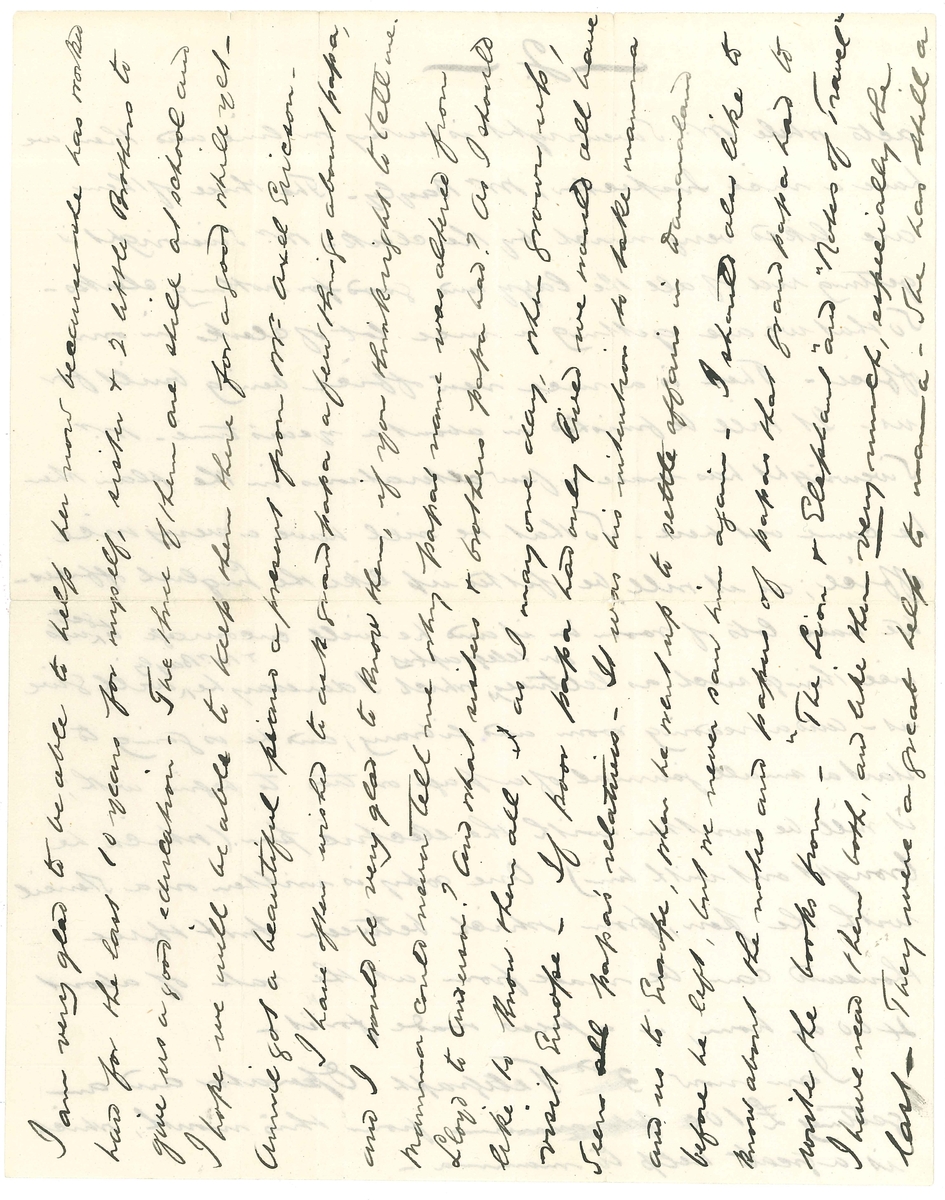 I am very glad to be able to help her now because she has worked
hard for the last 10 years for myself, sister & 2 little Brothers to
give us a good education - The three of them are still at school and
I hope we will be able to keep them there for a good while yet -
Annie got a beautiful piano a present from Mr Axel Ericson -
I have often wished to ask grandpapa a few things about papa,
and I would be very glad to know them, if you think right to tell me.
Mamma could never tell me why papas name was altered from
Lloyd to Andersson? And what sisters & brothers papa had? As I should
like to know them all, as I may one day, when grown up,
visit Europe - If poor papa had only lived we would all have
seen all papa's relations - It was his intention to take mamma
and us to Europe, when he went up to settle affairs in Damaraland
before he left, but we never saw him again - I should also like to
know about the notes and papers of papas that grandpapa had to
write the books from - "The Lion & Elephant" and "Notes of Travel"
I have read them both, and like them very much, especially the
last - They were a great help to mamma - She has still a